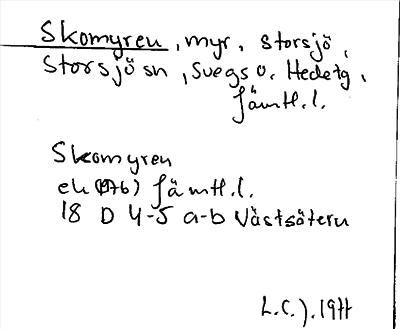 Skomyren, myr, Storsjö,
Storsjö sn, Svegs o. Hedetg,
Jämtl. l.
Skomyren
ek (1976) Jämtl. l.
18 D 4-5 a-b Västsätern
L.C.J. 1977